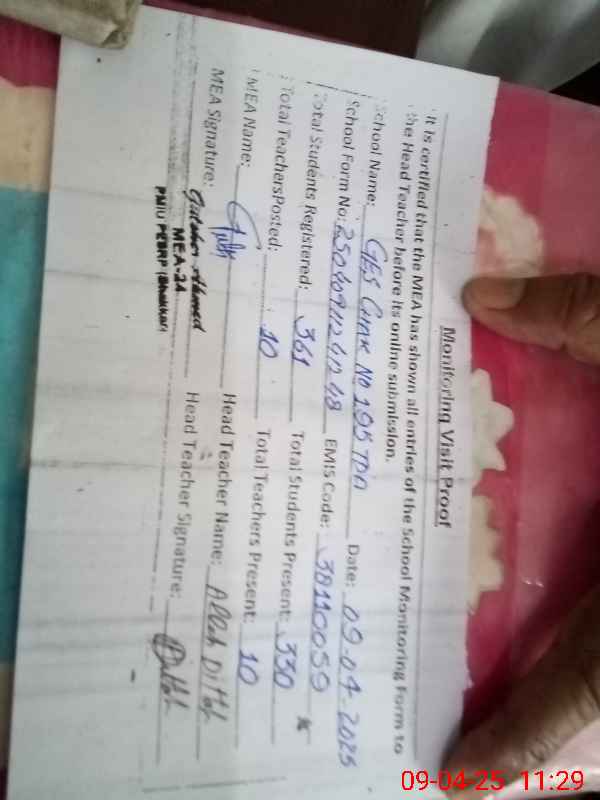 Monitoring Visit Proof
It is certified that the MEA has shown all entries of the School Monitoring Form to
the Head Teacher before its online submission.
School Name: GES Chak No 195 TDA Date: 09-04-2025
School Form No: 2504091124248 EMIS Code: 38110059
Total Students Registered: 361 Total Students Present: 330
Total Teachers Posted: 10 Total Teachers Present: 10
MEA Name: Head Teacher Name: Allah Ditta
MEA Signature: Head Teacher Signature:
Ahmed
MEA-24
PMIU PESRP (Bhakkar)
09-04-25 11:29